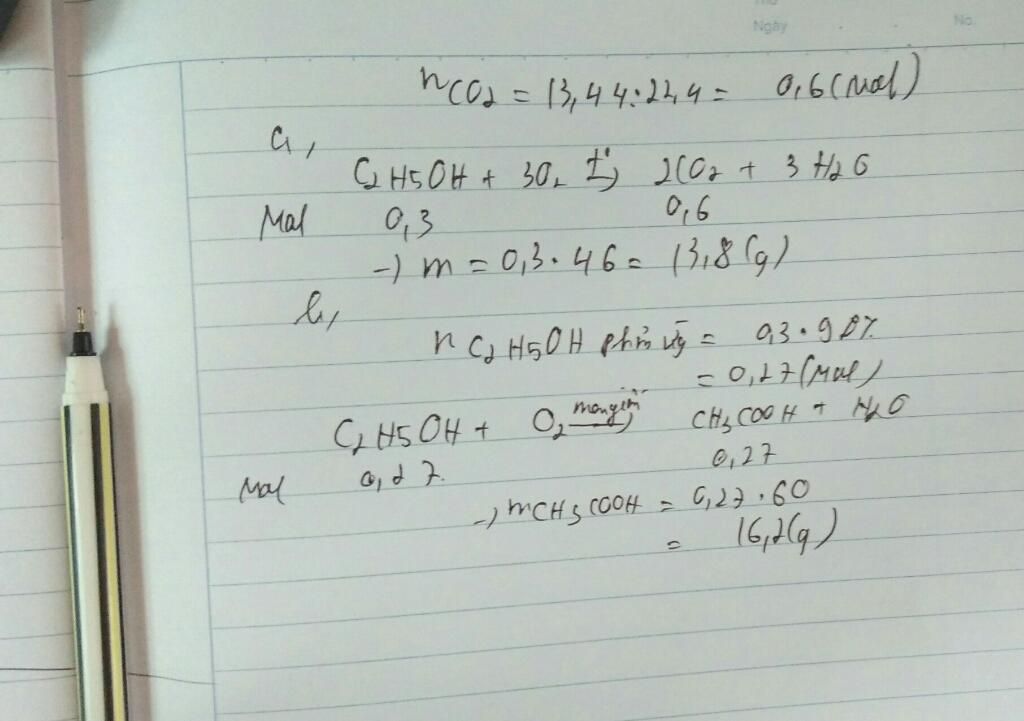 Thứ
Ngày No.
nCO2 = 13,44:22,4 = 0,6 (mol)
a,
C2H5OH + 3O2 t°→ 2CO2 + 3H2O
Mol 0,3 0,6
→ m = 0,3.46 = 13,8 (g)
b,
nC2H5OH phản ứng = 0,3.90%
= 0,27 (mol)
C2H5OH + O2 men giấm→ CH3COOH + H2O
Mol 0,27 0,27
→ mCH3COOH = 0,27.60
= 16,2 (g)